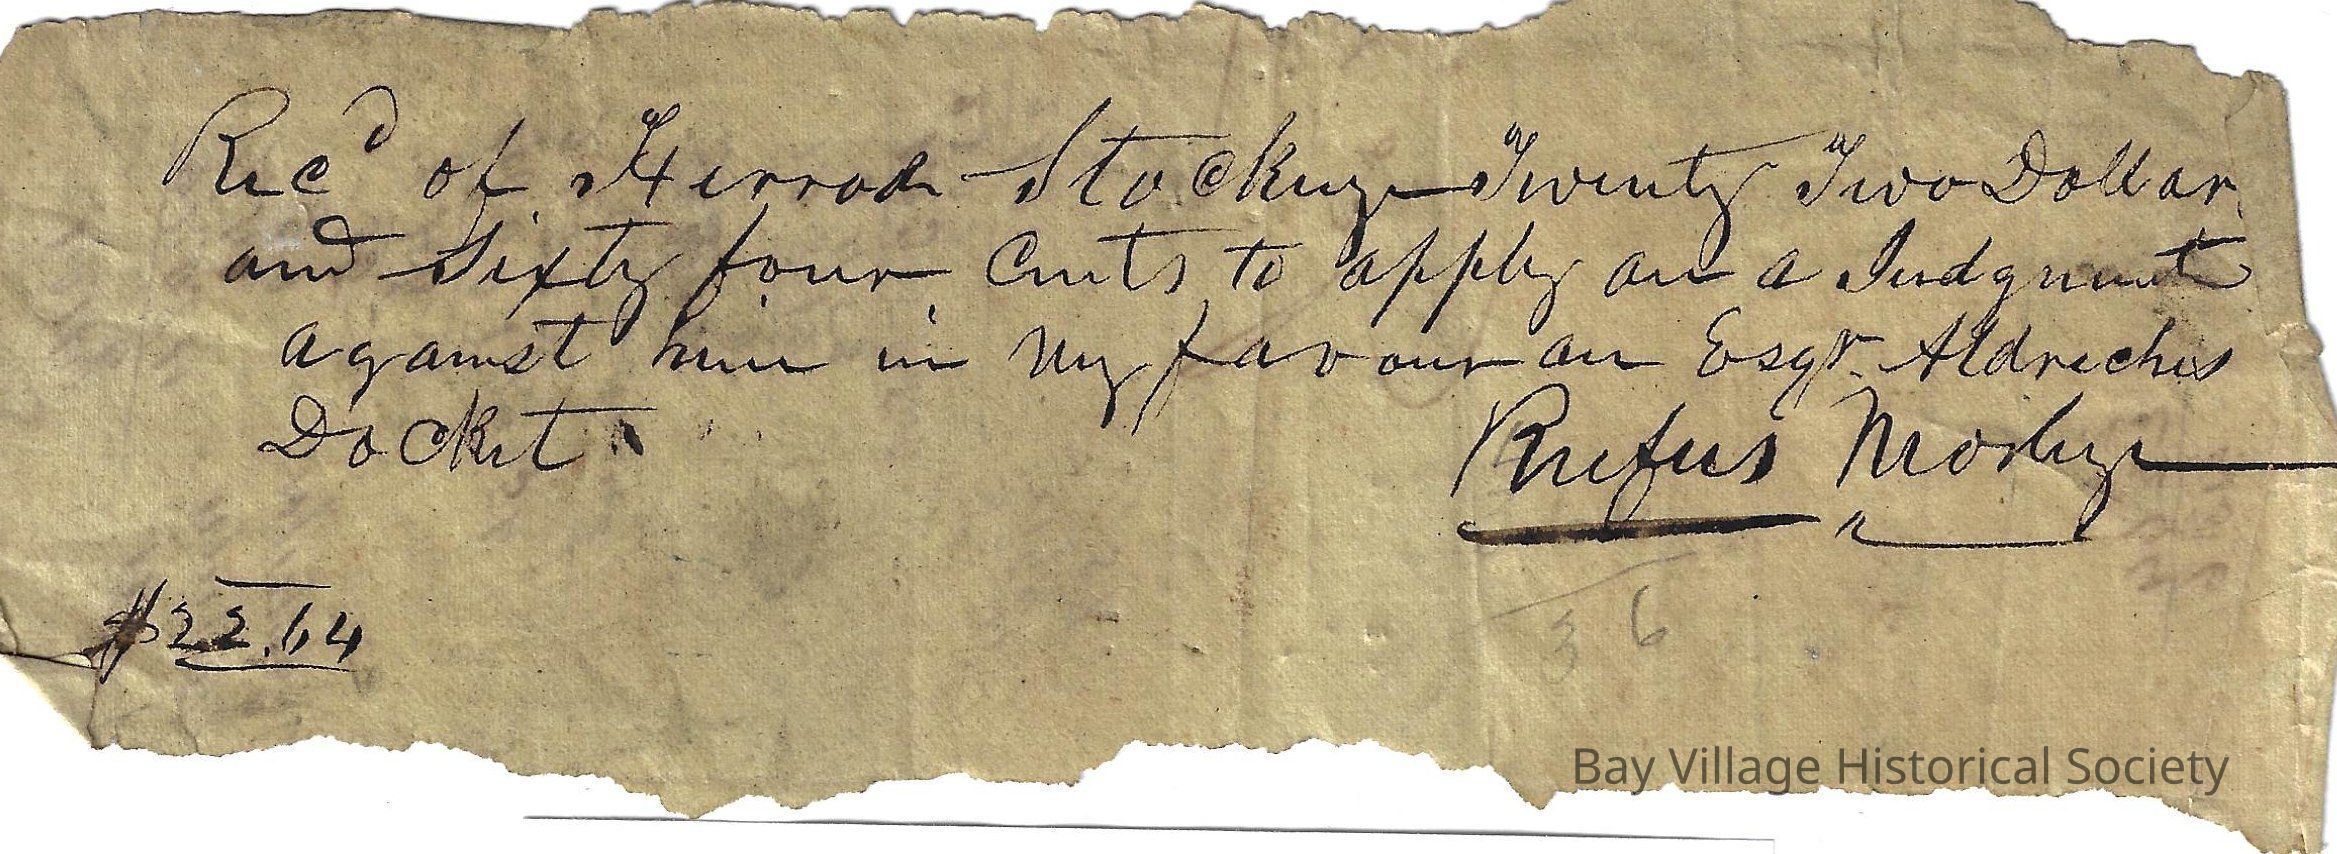 Recd of Herrod Stocking Twenty Two Dollar
and Sixty four Cents to apply on a Judgment
against him in my favour on Esqr. Aldreches
Docket
Rufus
$22.64
36
Bay Village Historical Society